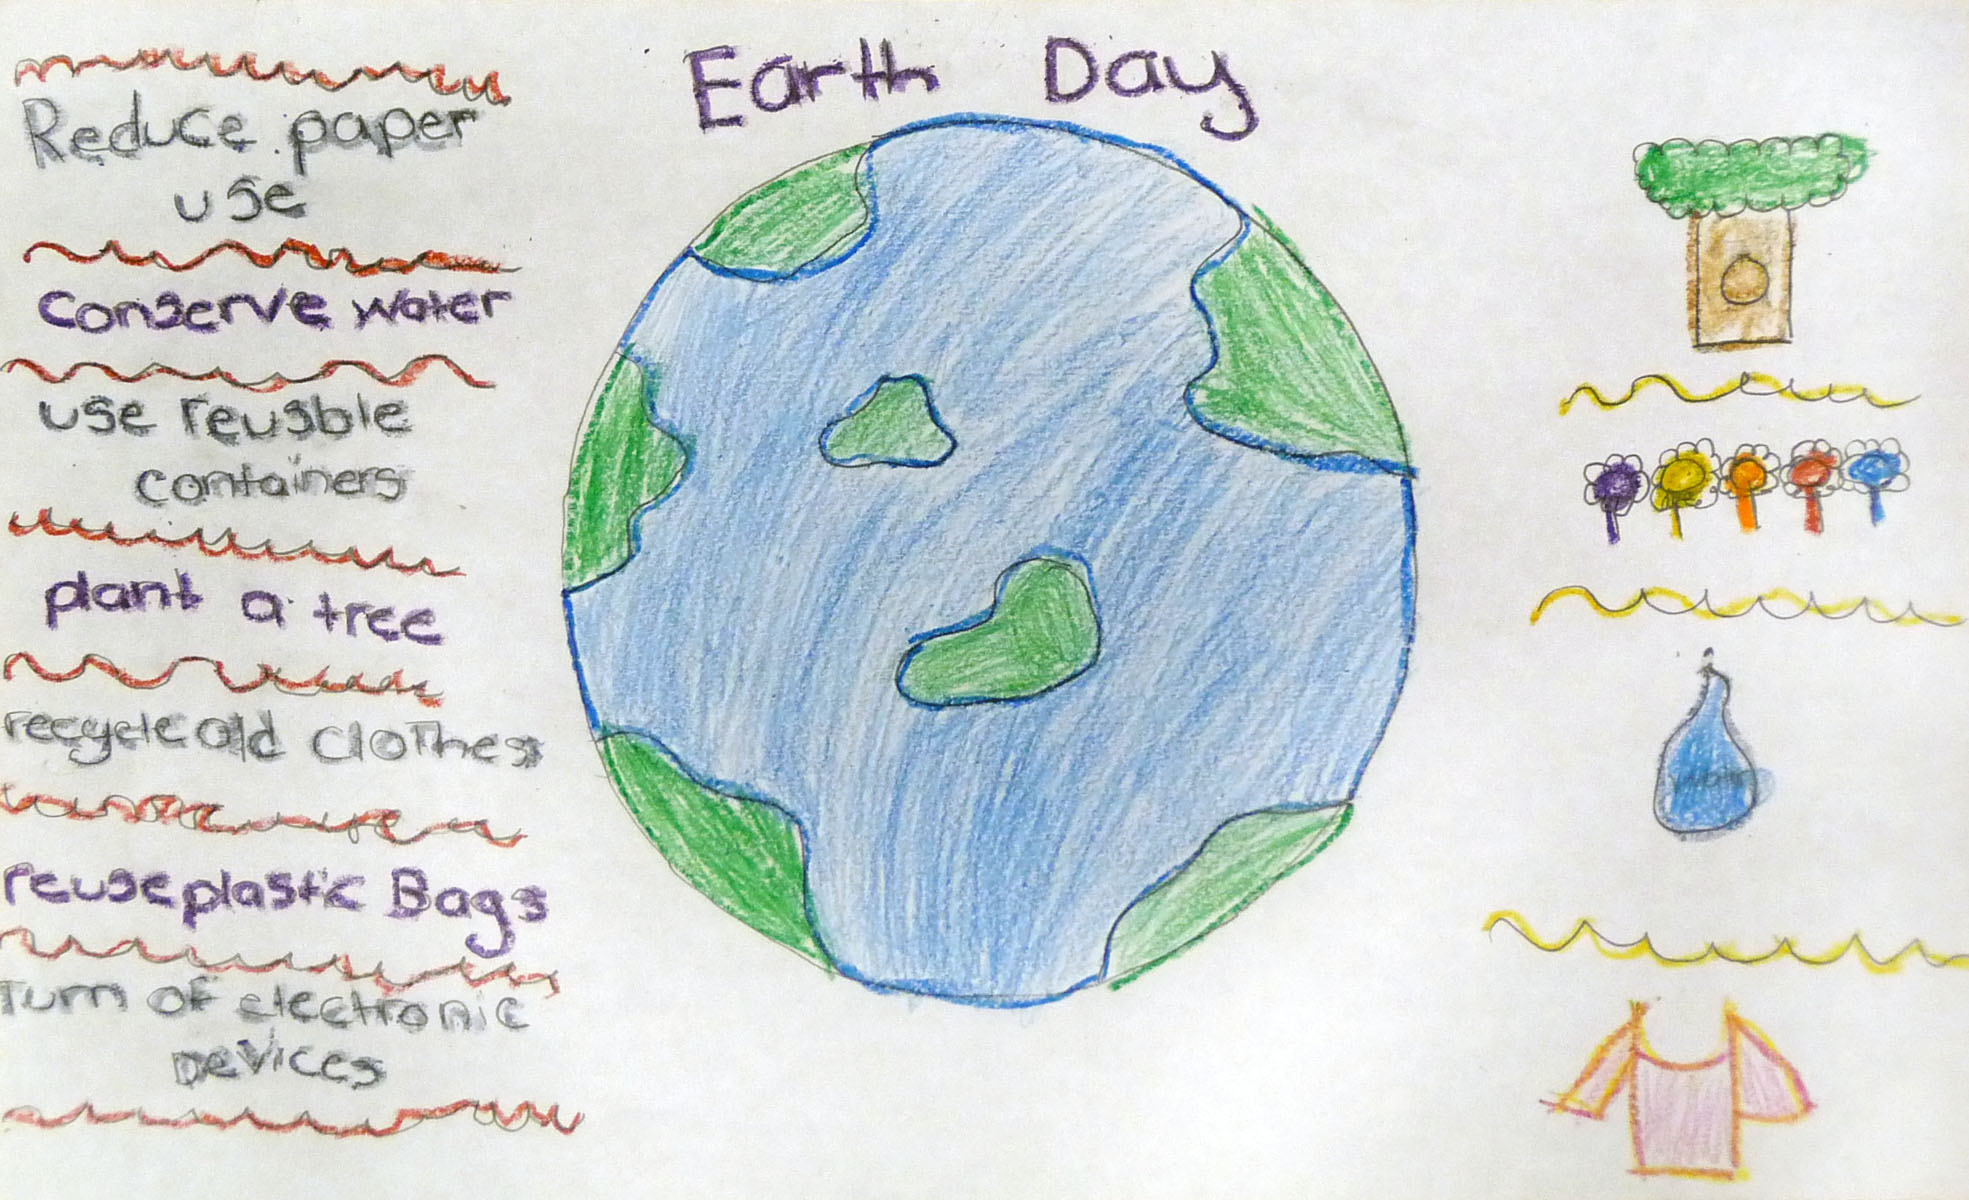 Earth Day
Reduce paper
use
conserve water
use reusble
containers
plant a tree
recycle old clothes
reuse plastic Bags
Turn of electronic
Devices
water